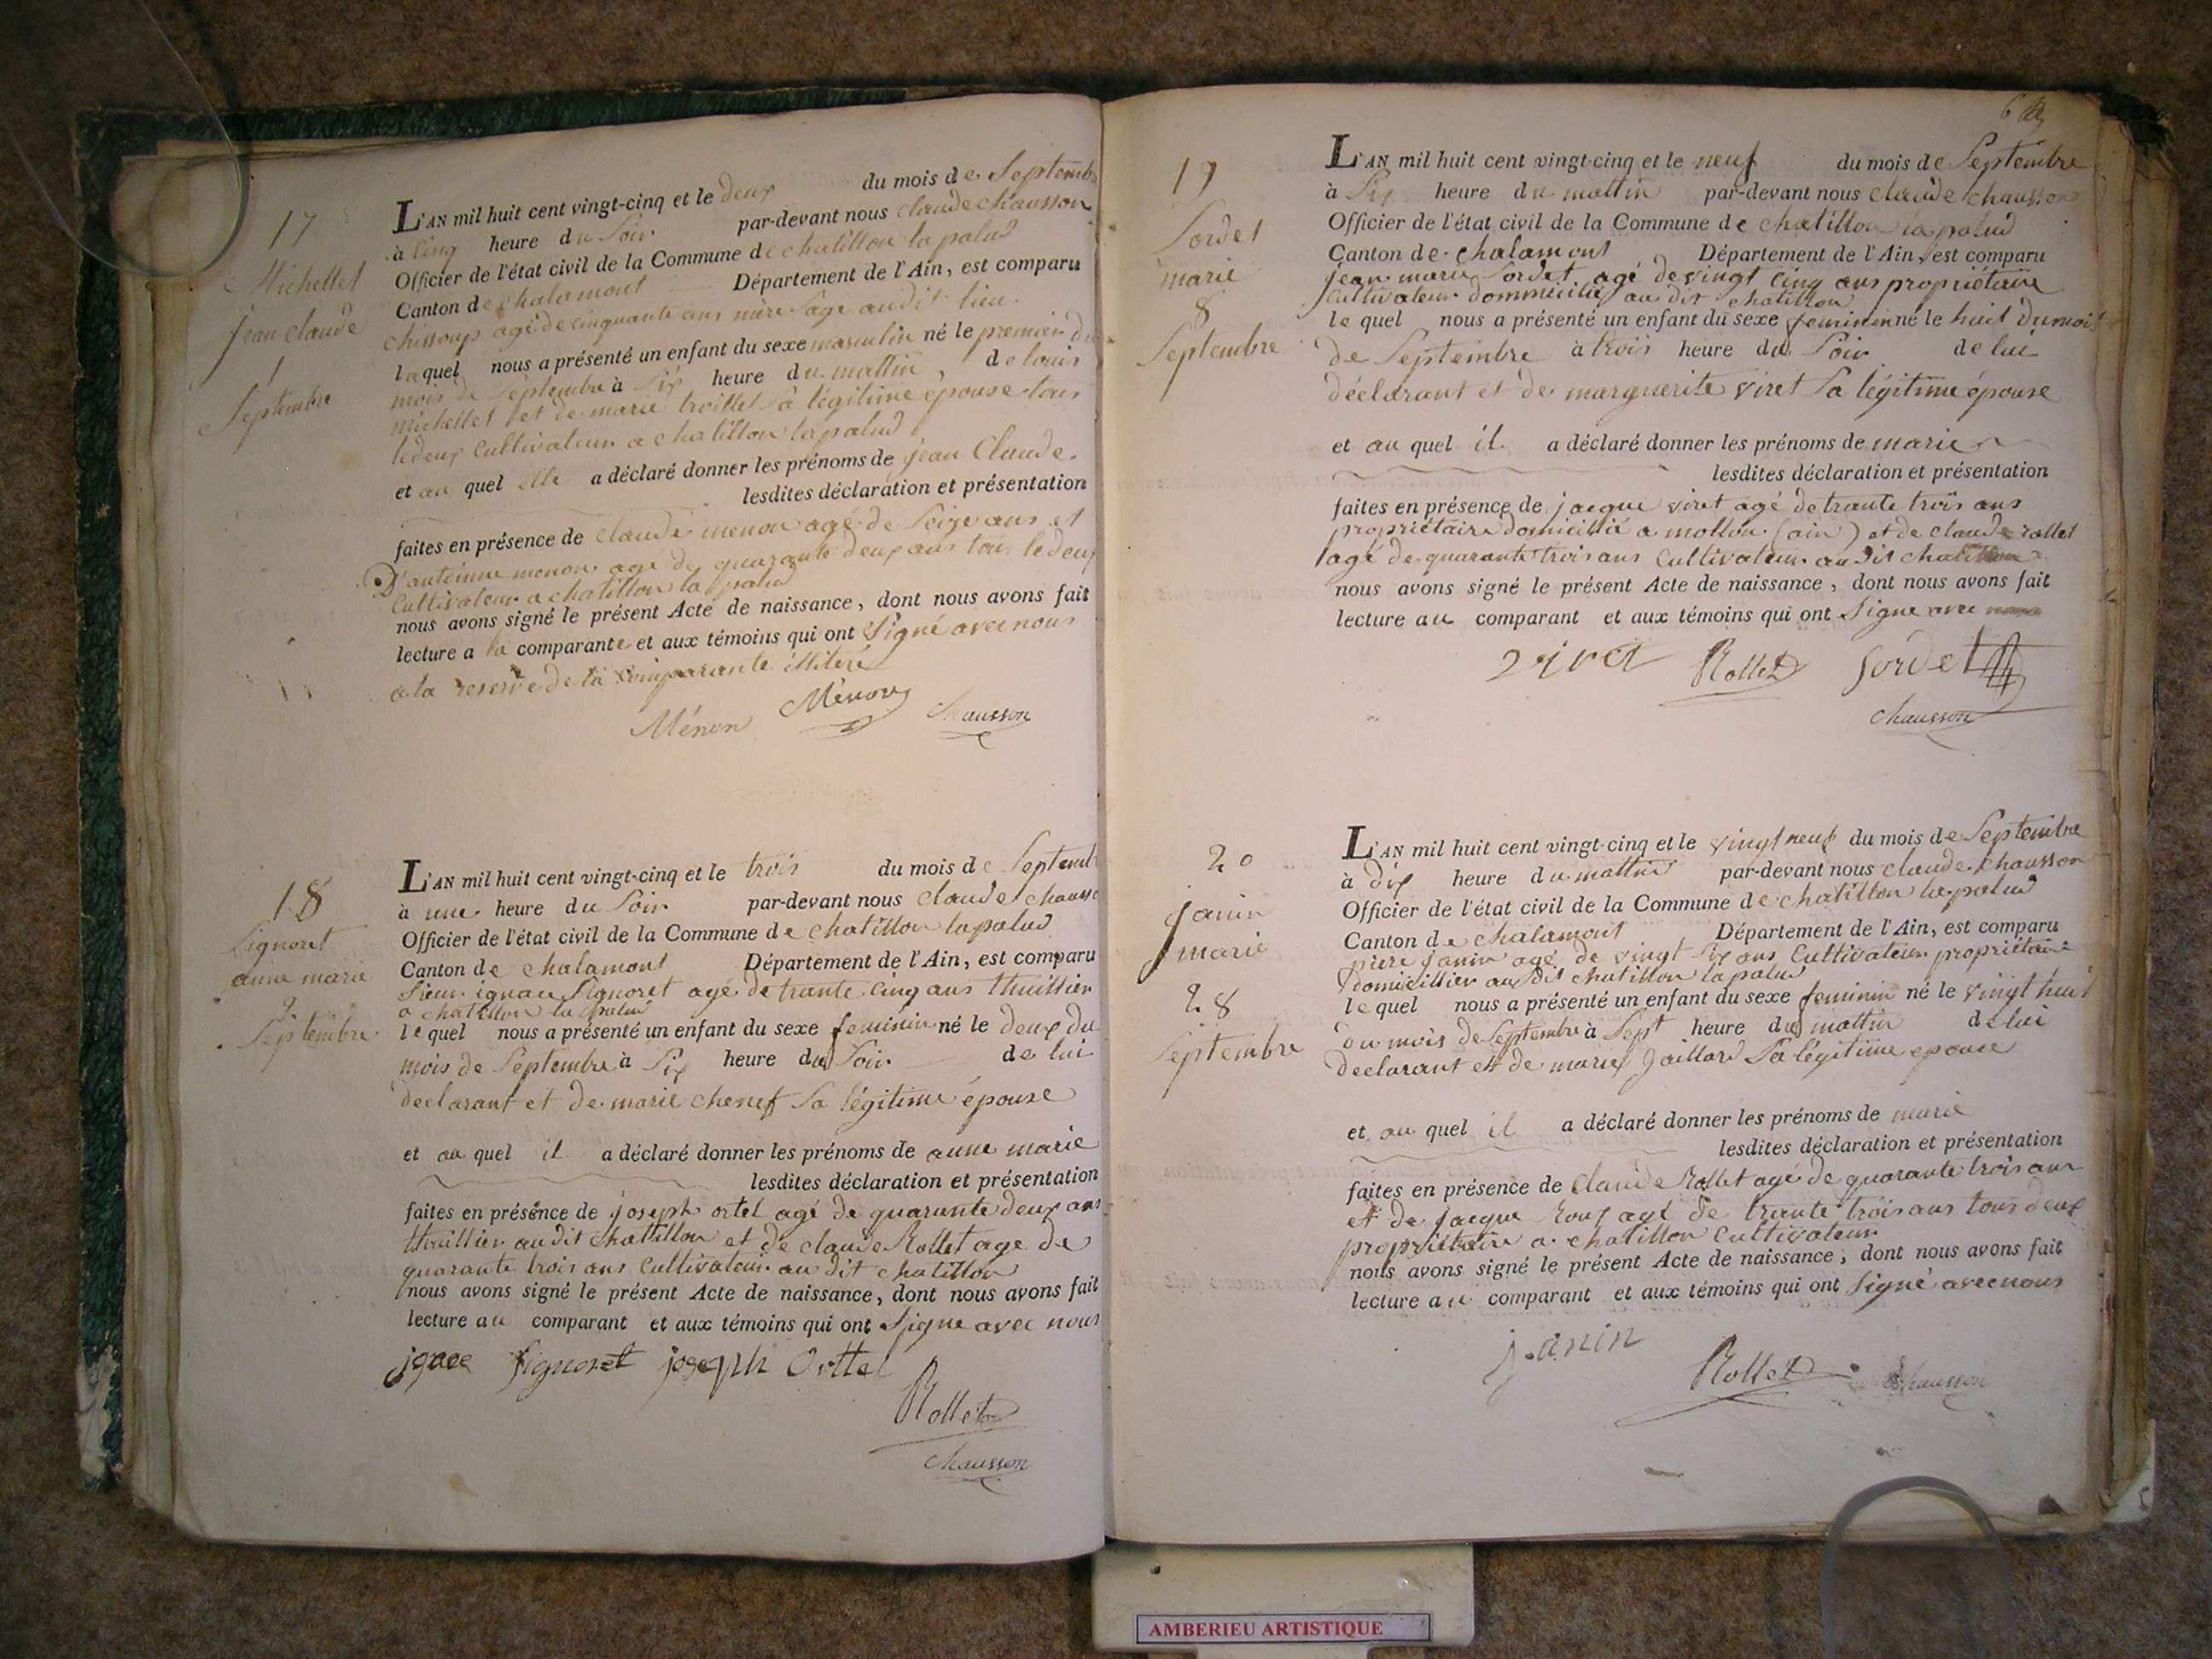 17
Michellet
jean claude
1
Septembre
L'AN mil huit cent vingt-cinq et le deux du mois de Septembre
à cinq heure du Soir par-devant nous claude chausson
Officier de l'état civil de la Commune de chatillon la palud
Canton de chalamont Département de l'Ain, est comparu
agé de cinquante ans mère Sage audit lieu
laquel nous a présenté un enfant du sexe masculin né le premier du
mois de Septembre à Six heure du mattin, de louis
michellet et de marie trosllet Sa légitime épouse tous
ledeux Cultivateur a chatillon la palud
et au quel elle a déclaré donner les prénoms de jean Claude.
lesdites déclaration et présentation
faites en présence de Claude menon agé de Seize ans et
D'antoinne menon agé de quarante deux ans tous ledeux
Cultivateur a chatillon la palud
nous avons signé le présent Acte de naissance, dont nous avons fait
lecture a la comparante et aux témoins qui ont Signé avec nous
a la reserve de la comparante illiteré
Ménon Ménon Chausson
18
Signoret
anne marie
2
Septembre
L'AN mil huit cent vingt-cinq et le trois du mois de Septemb
à une heure du Soir par-devant nous claude chausso
Officier de l'état civil de la Commune de chatillon lapalud
Canton de chalamont Département de l'Ain, est comparu
Sieur ignace Signoret agé de trante cinq ans thuillier
a chatillon la palud
lequel nous a présenté un enfant du sexe feminin né le deux du
mois de Septembre à Six heure du Soir de lui
declarant et de marie chenef Sa légitime épouse
et au quel il a déclaré donner les prénoms de anne marie
lesdites déclaration et présentation
faites en présence de joseph ortel agé de quarante deux ans
thuillier au dit chattillon et de claude Rollet age de
quarante trois ans Cultivateur au dit chatillon
nous avons signé le présent Acte de naissance, dont nous avons fait
lecture au comparant et aux témoins qui ont Signe avec nous
ignace Signoret joseph Ortel
Rollet
Chausson
19
Sordet
marie
8
Septembre
L'AN mil huit cent vingt-cinq et le neuf du mois de Septembre
à Six heure du mattin par-devant nous claude chausson
Officier de l'état civil de la Commune de chatillon la palud
Canton de chalamont Département de l'Ain, est comparu
jean marie Sordet agé de vingt cinq ans propriétaire
Cultivateur dommicilié au dit chatillon
lequel nous a présenté un enfant du sexe feminin né le huit du mois
de Septembre à trois heure du Soir de lui
déclarant et de marguerite viret Sa légitime épouse
et au quel il a déclaré donner les prénoms de marie
lesdites déclaration et présentation
faites en présence de jacque viret agé de trante trois ans
propriétaire domicilié a mollon (ain) et de claude rollet
agé de quarante trois ans Cultivateur au dit chatillon
nous avons signé le présent Acte de naissance, dont nous avons fait
lecture au comparant et aux témoins qui ont Signe avec nous
viret Rollet Sordet
Chausson
20
janin
marie
28
Septembre
L'AN mil huit cent vingt-cinq et le vingt neuf du mois de Septembre
à dix heure du mattin par-devant nous claude chausson
Officier de l'état civil de la Commune de chatillon la palud
Canton de chalamont Département de l'Ain, est comparu
piere janin agé de vingt Six ans Cultivateur propriétaire
domicillier au dit chatillon la palud
lequel nous a présenté un enfant du sexe feminin né le vingt huit
du mois de Septembre à Sept heure du mattin de lui
declarant et de marie Gaillard Sa légitime epouse
et au quel il a déclaré donner les prénoms de marie
lesdites déclaration et présentation
faites en présence de Claude Rollet agé de quarante trois ans
et de jacque roux agé de trante trois ans tous deux
propriétaire a chatillon Cultivateur
nous avons signé le présent Acte de naissance, dont nous avons fait
lecture au comparant et aux témoins qui ont Signé avec nous
janin
Rollet Chausson
AMBERIEU ARTISTIQUE